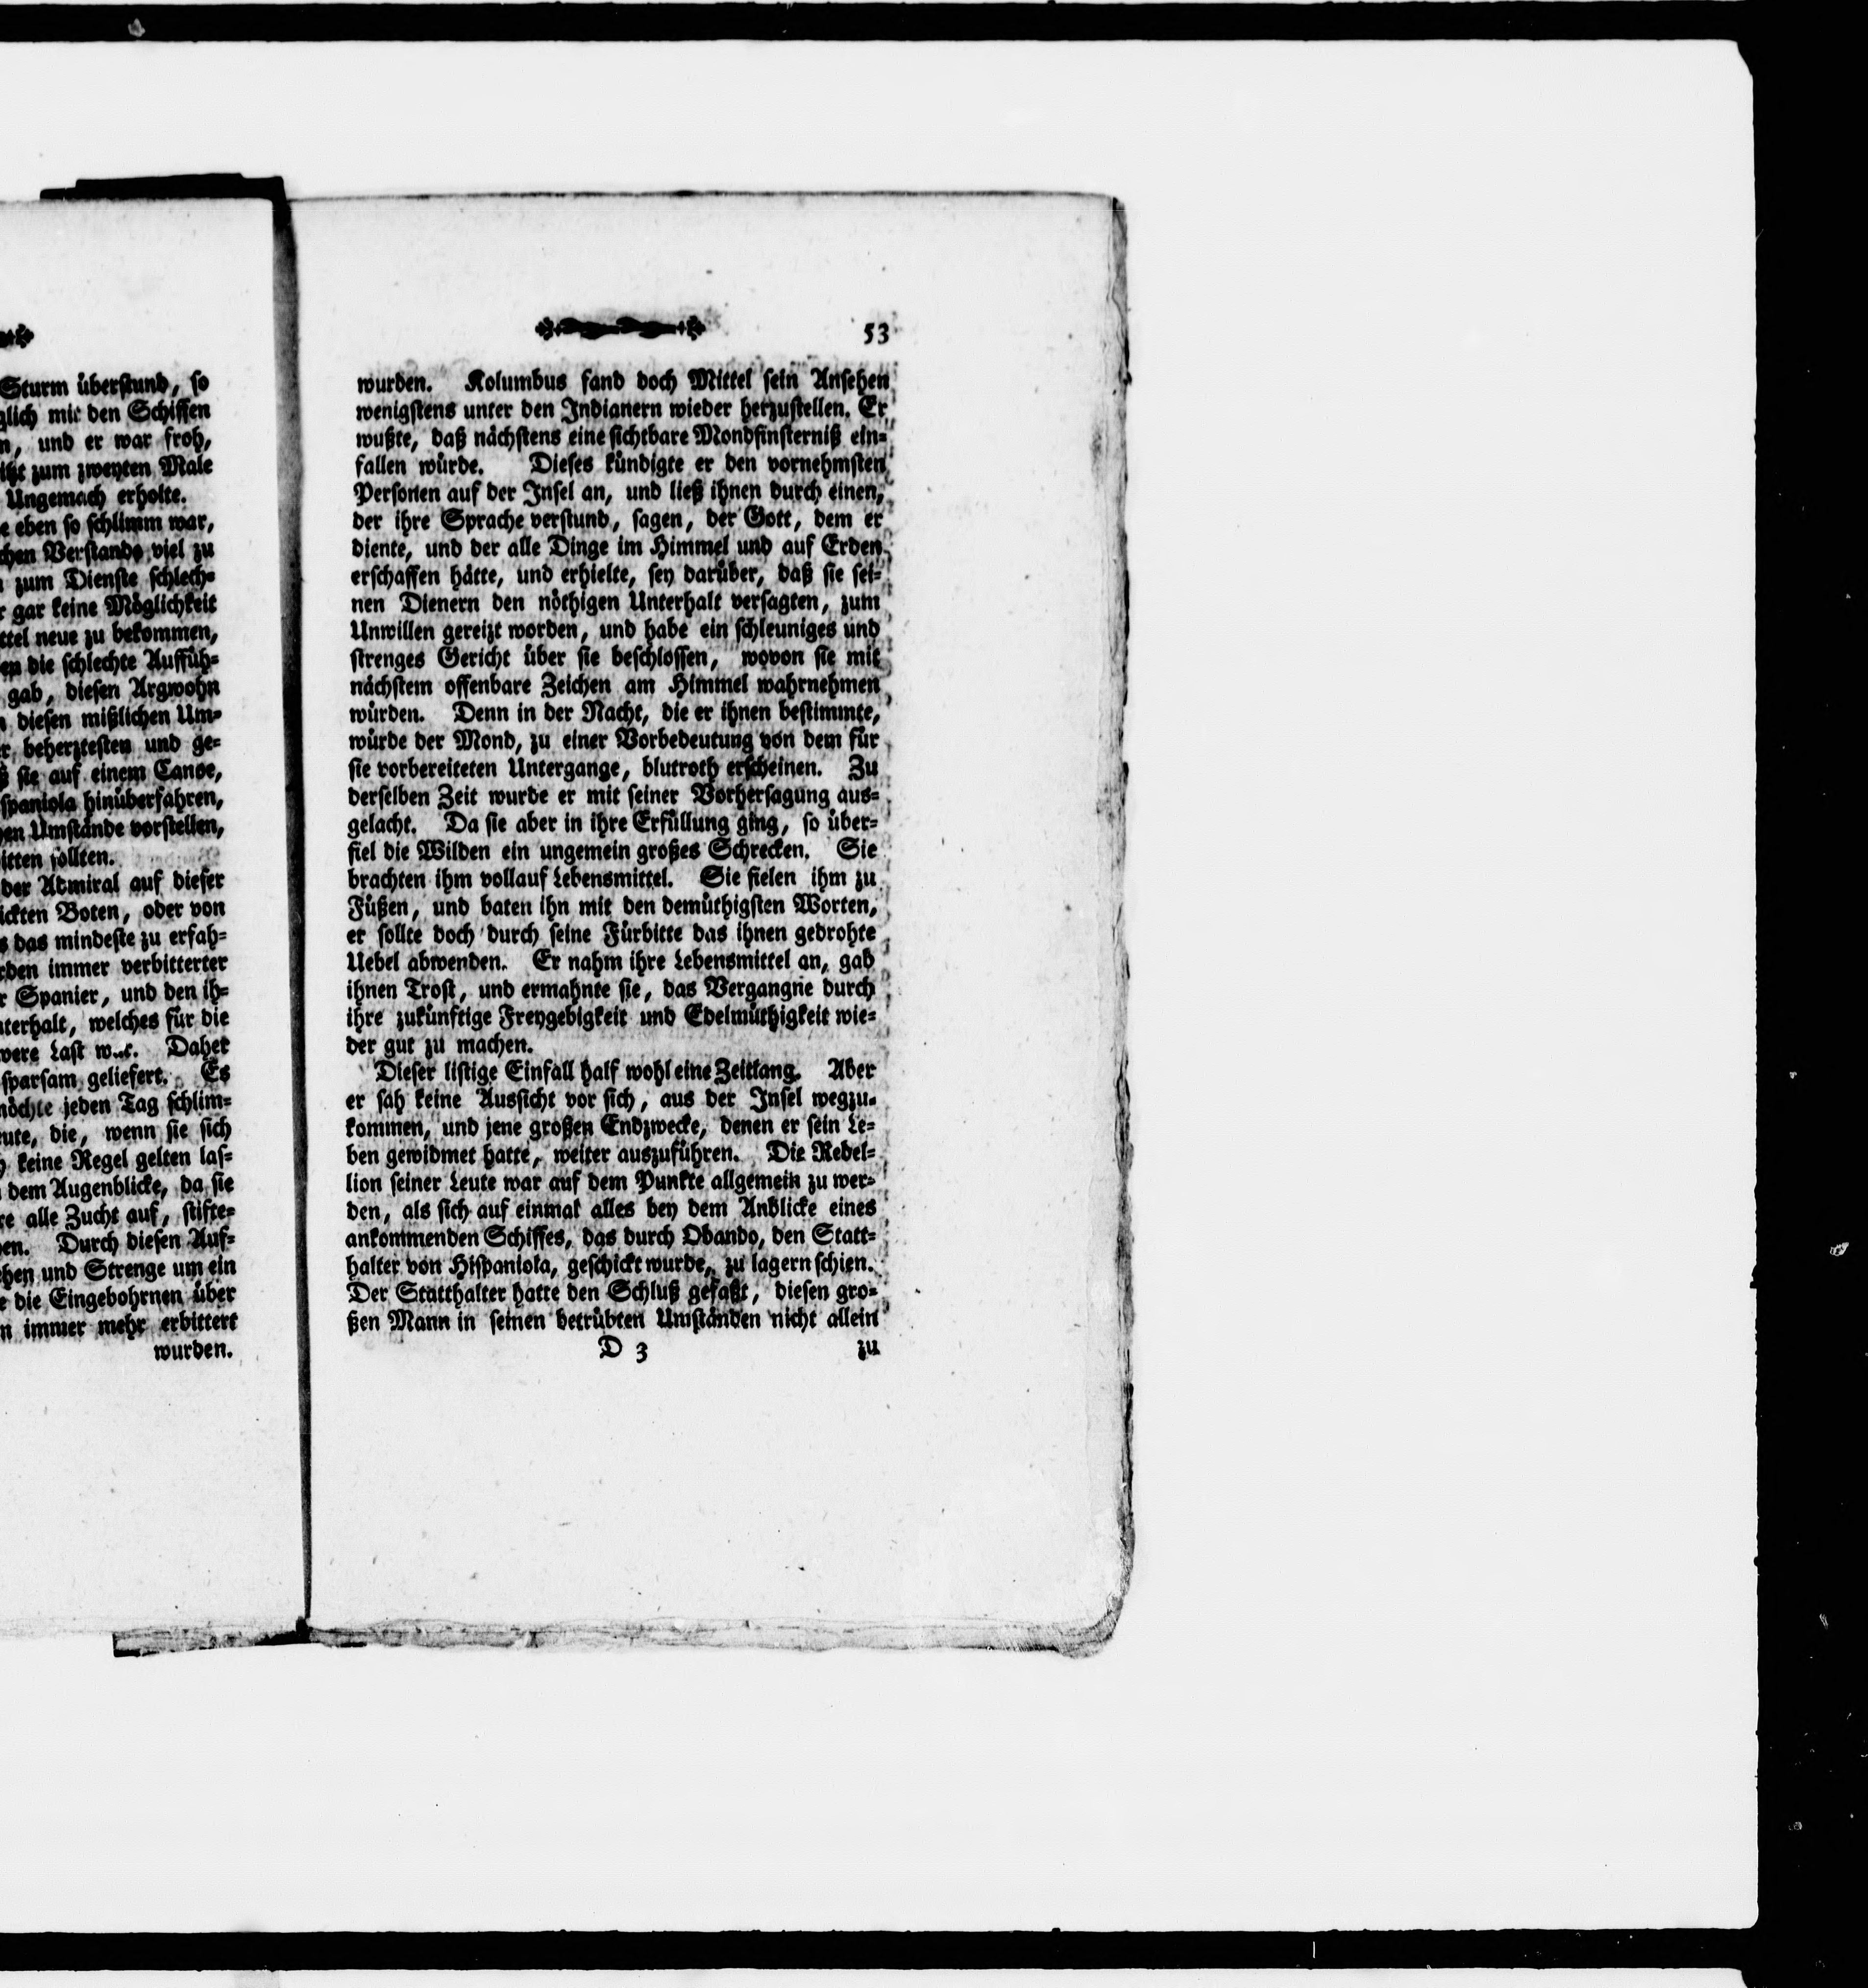 Sturm überstund, so
mit den Schiffen
und er war froh,
zum zweyten Male
Ungemach erholte.
eben so schlimm war,
Verstands viel zu
zum Dienste schlech-
gar keine Möglichkeit
neue zu bekommen,
die schlechte Auffüh-
gab, diesen Argwohn
diesen mißlichen Um-
beherztesten und ge-
sie auf einem Canoe,
hinüberfahren,
Umstände vorstellen,
sollten.
der Admiral auf dieser
Boten, oder von
das mindeste zu erfah-
immer verbitterter
Spanier, und den ih-
welches für die
Last war. Daher
sparsam geliefert. Es
jeden Tag schlim-
die, wenn sie sich
keine Regel gelten las-
dem Augenblicke, da sie
alle Zucht auf, stifte-
Durch diesen Auf-
und Strenge um ein
die Eingebohrnen über
immer mehr erbittert
wurden.
53
wurden. Kolumbus fand doch Mittel sein Ansehen
wenigstens unter den Indianern wieder herzustellen. Er
wußte, daß nächstens eine sichtbare Mondfinsterniß ein-
fallen würde. Dieses kündigte er den vornehmsten
Personen auf der Insel an, und ließ ihnen durch einen,
der ihre Sprache verstund, sagen, der Gott, dem er
diente, und der alle Dinge im Himmel und auf Erden
erschaffen hätte, und erhielte, sey darüber, daß sie sei-
nen Dienern den nöthigen Unterhalt versagten, zum
Unwillen gereizt worden, und habe ein schleuniges und
strenges Gericht über sie beschlossen, wovon sie mit
nächstem offenbare Zeichen am Himmel wahrnehmen
würden. Denn in der Nacht, die er ihnen bestimmte,
würde der Mond, zu einer Vorbedeutung von dem für
sie vorbereiteten Untergange, blutroth erscheinen. Zu
derselben Zeit wurde er mit seiner Vorhersagung aus-
gelacht. Da sie aber in ihre Erfüllung ging, so über-
fiel die Wilden ein ungemein großes Schrecken. Sie
brachten ihm vollauf Lebensmittel. Sie fielen ihm zu
Füßen, und baten ihn mit den demüthigsten Worten,
er sollte doch durch seine Fürbitte das ihnen gedrohte
Uebel abwenden. Er nahm ihre Lebensmittel an, gab
ihnen Trost, und ermahnte sie, das Vergangne durch
ihre zukünftige Freygebigkeit und Edelmüthigkeit wie-
der gut zu machen.
Dieser listige Einfall half wohl eine Zeitlang. Aber
er sah keine Aussicht vor sich, aus der Insel wegzu-
kommen, und jene großen Endzwecke, denen er sein Le-
ben gewidmet hatte, weiter auszuführen. Die Rebel-
lion seiner Leute war auf dem Punkte allgemein zu wer-
den, als sich auf einmal alles bey dem Anblicke eines
ankommenden Schiffes, das durch Obando, den Statt-
halter von Hispaniola, geschickt wurde, zu lagern schien.
Der Statthalter hatte den Schluß gefaßt, diesen gro-
ßen Mann in seinen betrübten Umständen nicht allein
D 3 zu